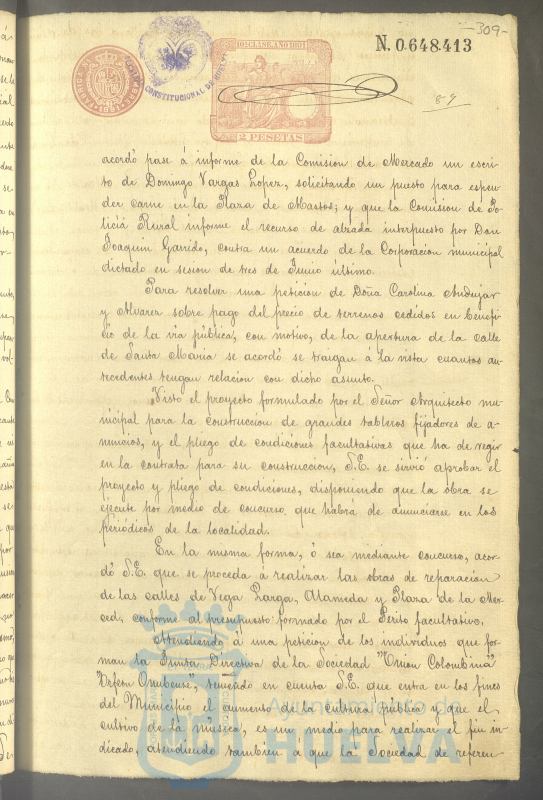 -309-
10ª CLASE. AÑO 1891
N. 0.648.413
CONSTITUCIONAL DE HUELVA
2 PESETAS
89
acordó pase á informe de la Comision de Mercado un escri-
to de Domingo Vargas Lopez, solicitando un puesto para espen-
der carne en la Plaza de Abastos; y que la Comision de Po-
licia Rural informe el recurso de alzada interpuesto por Don
Joaquin Garrido, contra un acuerdo de la Corporacion municipal
dictado en sesion de tres de Junio último.
Para resolver una peticion de Doña Carolina Andujar
y Alvarez sobre pago del precio de terrenos cedidos en benefi-
cio de la via pública, con motivo, de la apertura de la calle
de Santa Maria se acordó se traigan á la vista cuantos an-
tecedentes tengan relacion con dicho asunto.
Visto el proyecto formulado por el Señor Arquitecto mu-
nicipal para la construccion de grandes tableros fijadores de a-
nuncios, y el pliego de condiciones facultativas que ha de regir
en la contrata para su construccion, S.E. se sirvió aprobar el
proyecto y pliego de condiciones, disponiendo que la obra se
ejecute por medio de concurso que habrá de anunciarse en los
periódicos de la localidad.
En la misma forma, ó sea mediante concurso, acor-
dó S.E. que se proceda á realizar las obras de reparacion
de las calles de Vega Larga, Alameda y Plaza de la Mer-
ced, conforme al presupuesto formado por el Perito facultativo.
Atendiendo á una peticion de los individuos que for-
man la Junta Directiva de la Sociedad "Union Colombina"
"Orfeon Onubense", teniendo en cuenta S.E. que entra en los fines
del Municipio el aumento de la cultura pública y que el
cultivo de la música, es un medio para realizar el fin in-
dicado, atendiendo tambien á que la Sociedad de referen-
Ayuntamiento de
HUELVA